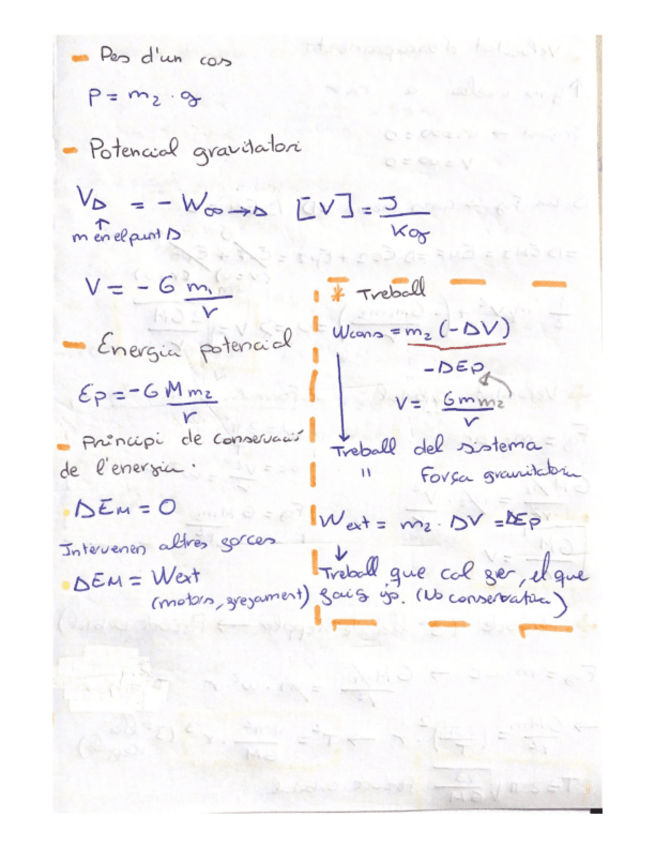 - Pes d'un cos
P = m₂ · g
- Potencial gravitatori
V_A = - W∞→A [V] = J/Kg
↑
m en el punt A
V = - G m₁/r
- Energia potencial
Ep = -G M m₂/r
- Principi de conservació
de l'energia:
• ΔEM = 0
Intervenen altres forces
• ΔEM = Wext
(motors, fregament)
* Treball
Wcons = m₂ (-ΔV)
-ΔEp
V = G m m₂/r
Treball del sistema
" Força gravitatòria
Wext = m₂ · ΔV = ΔEp
↓
Treball que cal fer, el que
faig jo. (No conservativa)